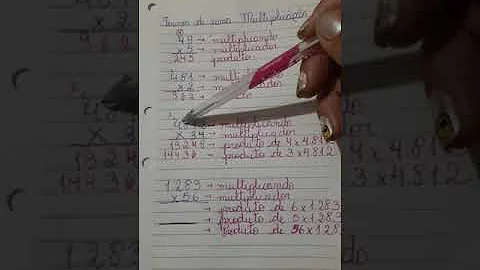 de Multiplicação
49 → multiplicando
x 5 → multiplicador
245 produto
481
x 2 →
962 →
→ multiplicando
x 34 → multiplicador
19248 → produto de 4x4812
14436 - produto de 3x4.812
1283 → multiplicando
x 56 → multiplicador
→ produto de 6x1283
→ produto de 5x1283
→ produto de 56x128